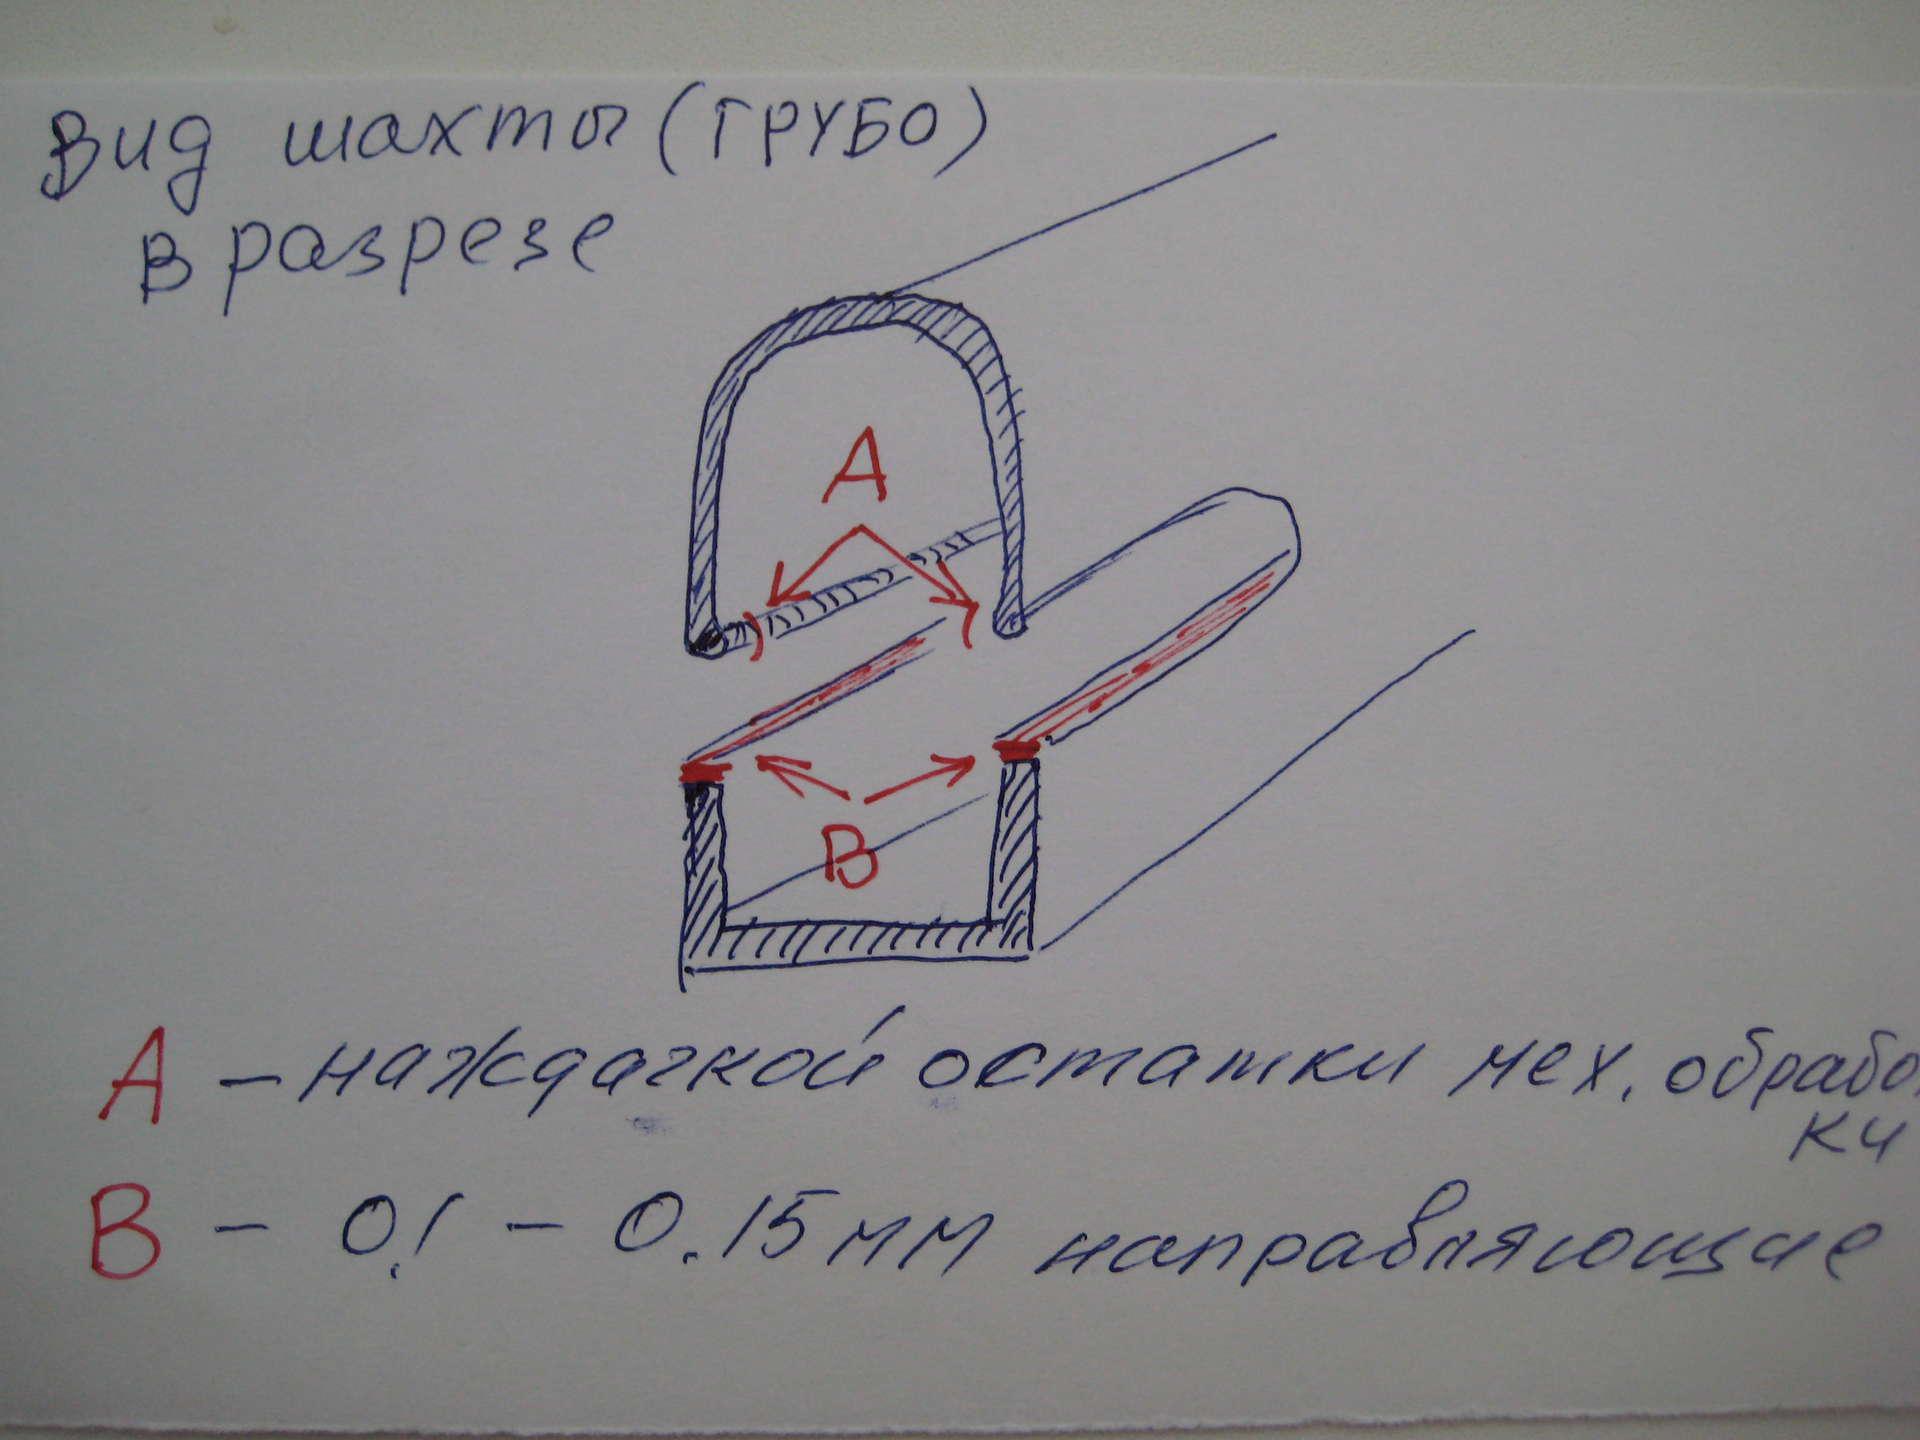 Вид шахты (ГРУБО)
в разрезе
A
B
A - наждачкой остатки мех. обрабо
ки
B - 0.1 - 0.15 мм направляющие